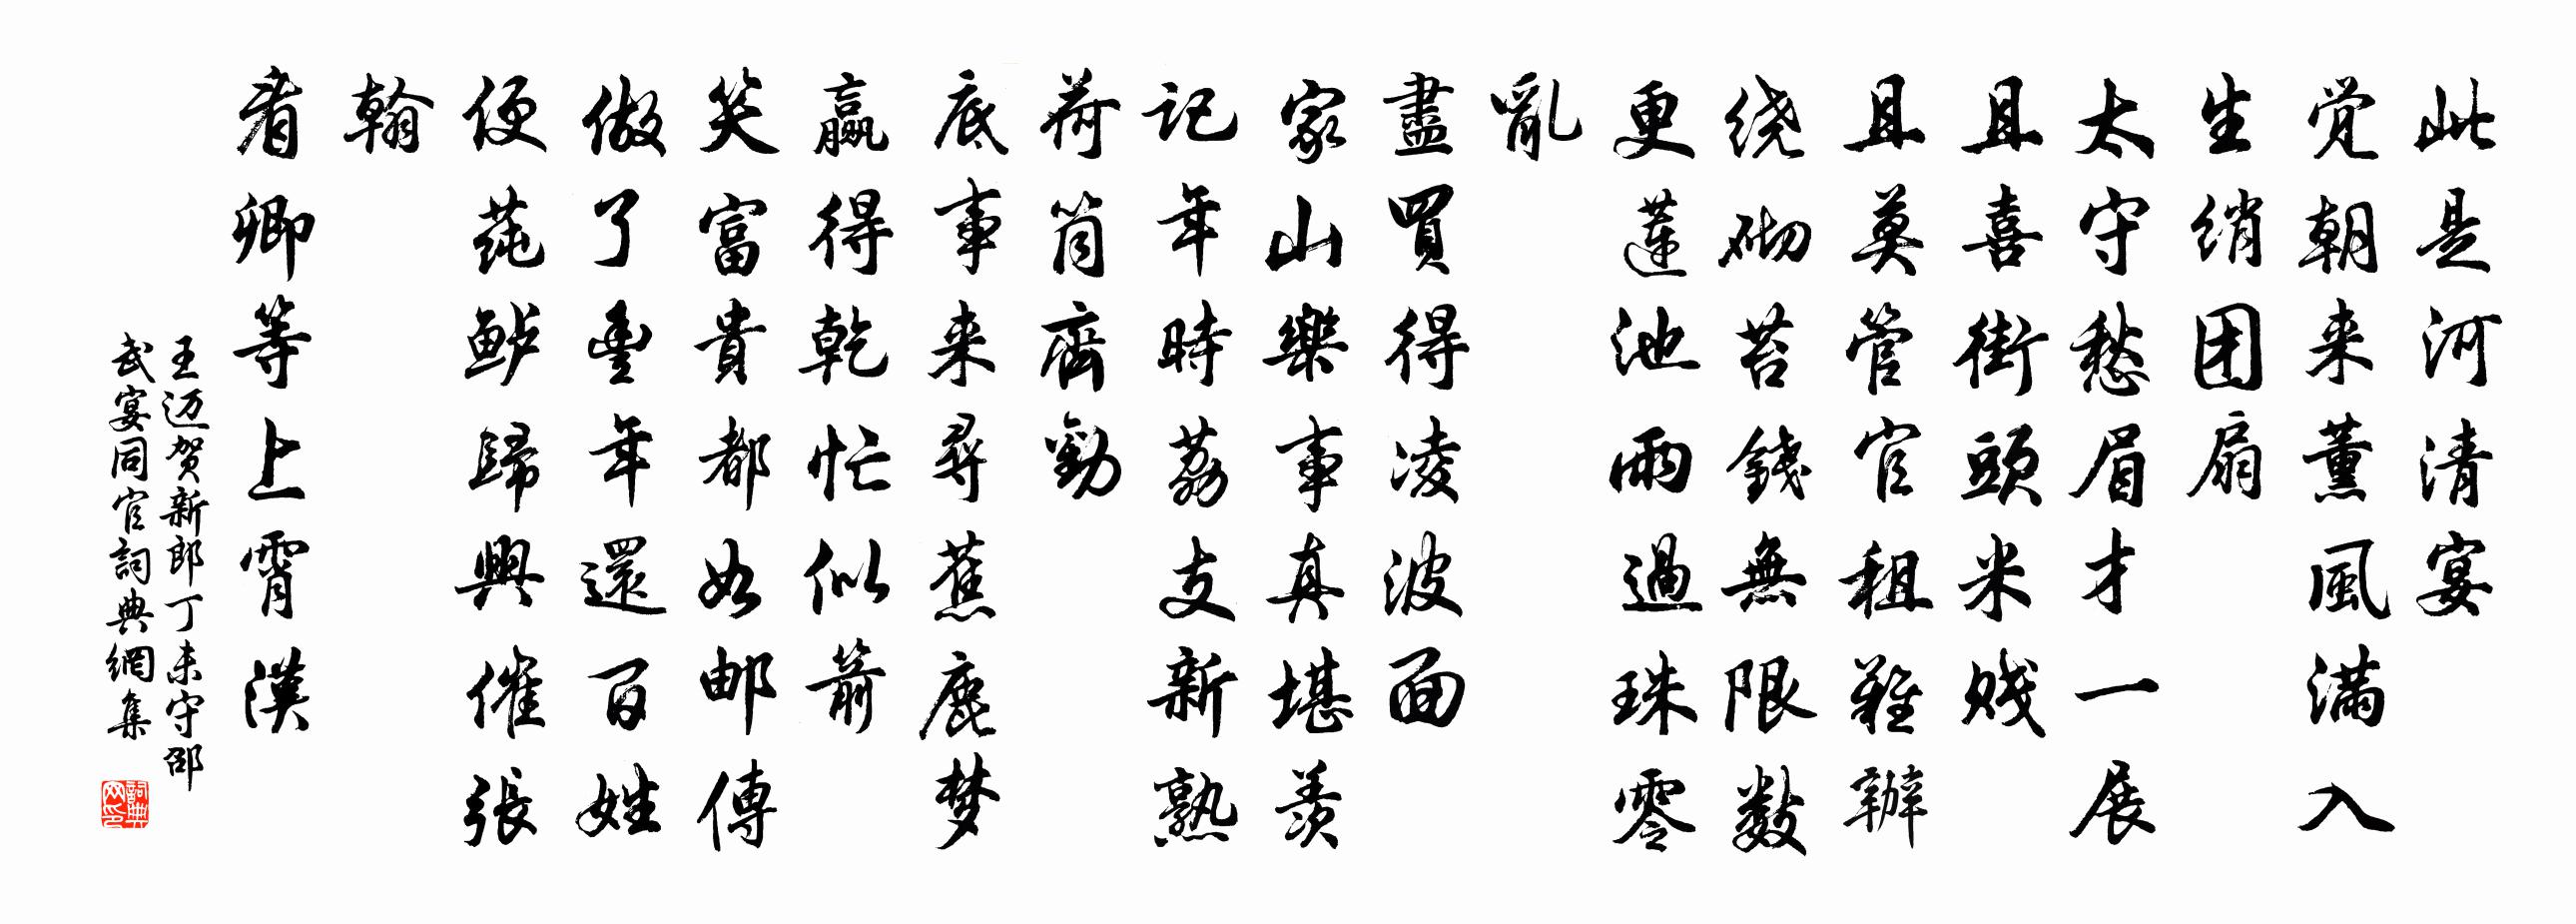 此是河清宴
觉朝来薰風满入
生绡团扇
太守愁眉才一展
且喜街頭米贱
且莫管官租難辦
绕砌苔錢無限數
更蓮池雨過珠零
亂
盡買得凌波面
家山樂事真堪羨
記年時荔支新熟
荷筒齊勸
底事来尋蕉鹿梦
贏得乾忙似箭
笑富貴都如邮傳
做了豐年還百姓
便莼鲈歸興催張
翰
看卿等上霄漢
王迈贺新郎丁未守邵
武宴同官詞典網集
詞典网印